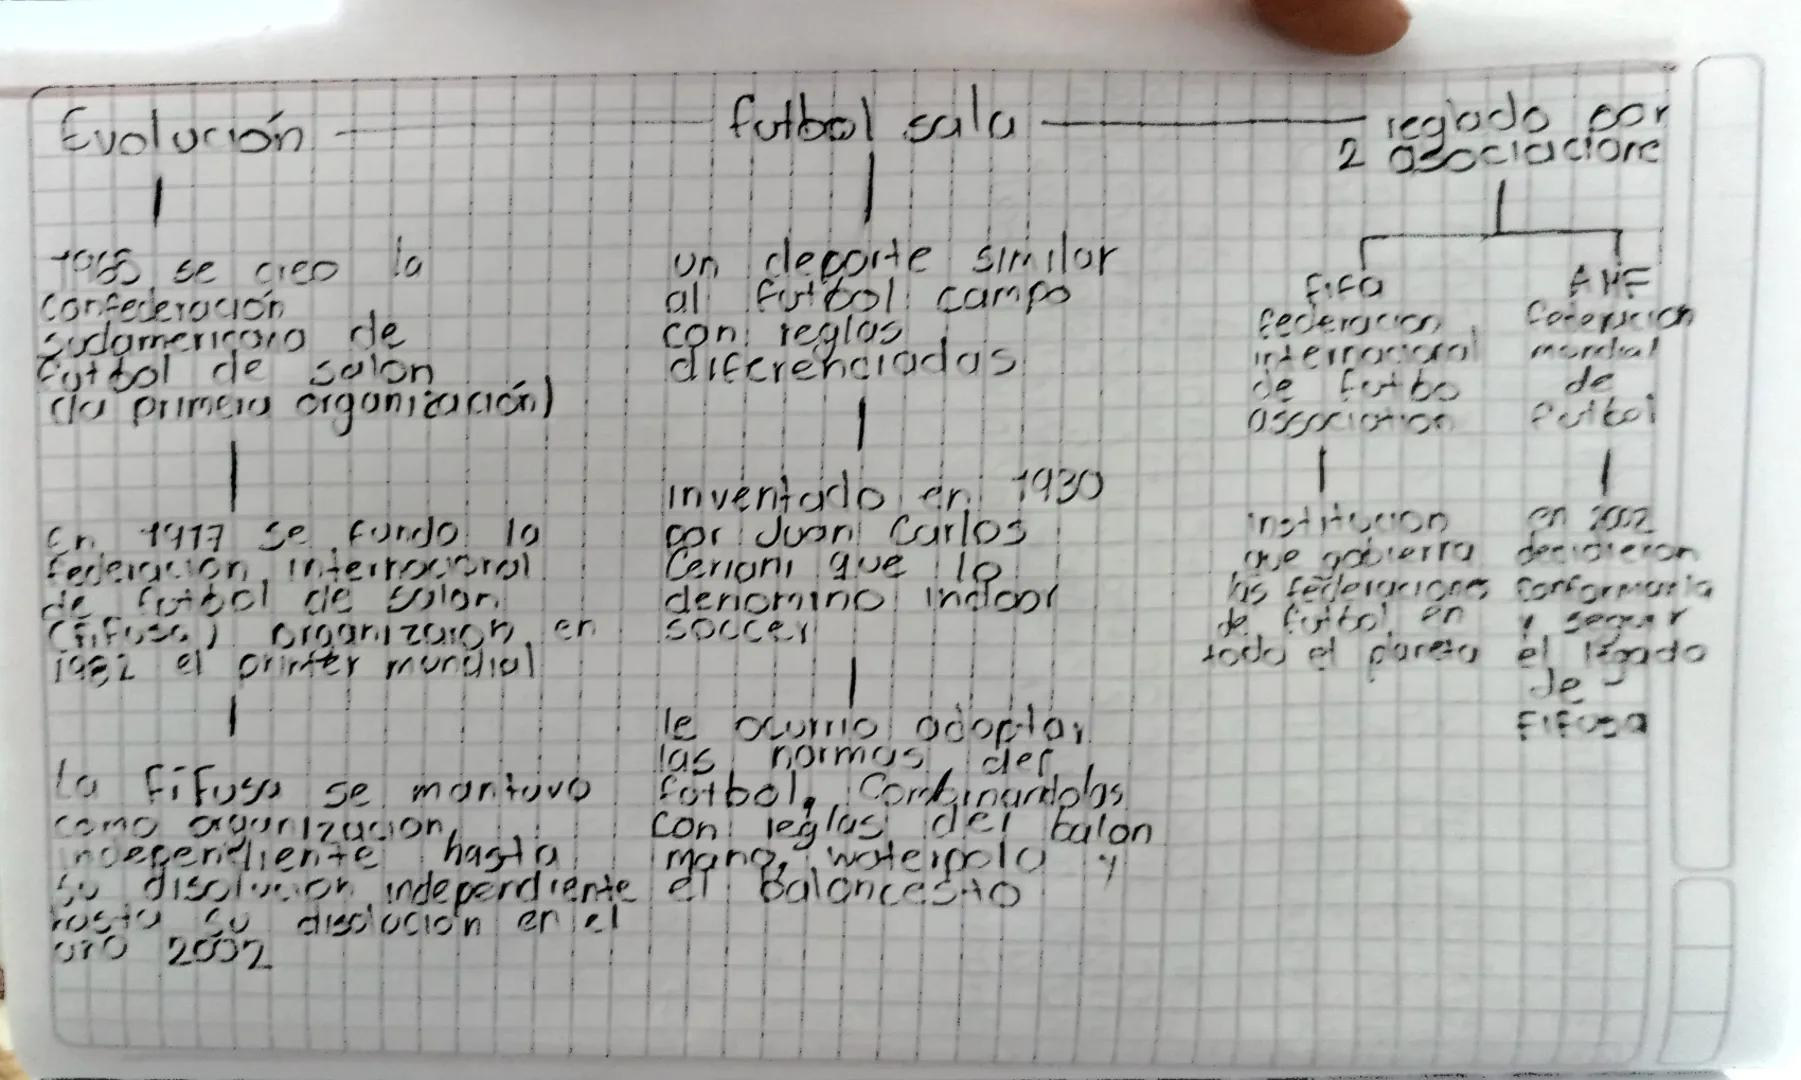 Evolución
1965 se creo la
Confederación
Sudamericana de
futbol de salon
(la primera organización)
En 1977 se fundo la
federacion internacional
de futbol de salon
(fifusa) organizaron en
1982 el primer mundial
La fifusa se mantuvo
como organizacion
independiente hasta
su disolucion independiente
hasta su disolución en el
año 2002
futbol sala
un deporte similar
al futbol campo
con reglas
diferenciadas
inventado en 1930
por Juan Carlos
Ceriani que lo
denomino indoor
soccer
le ocurrio adoptar
las normas del
futbol, Combinandolas
con reglas del balon
mano, waterpolo y
el baloncesto
reglado por
2 asociacione
fifa
federacion
internacional
de futbo
association
institucion
que gobierna
las federaciones
de futbol en
todo el planeta
AMF
federacion
mundial
de
futbol
en 2002
decidieron
conformarla
y seguir
el legado
de
fifusa